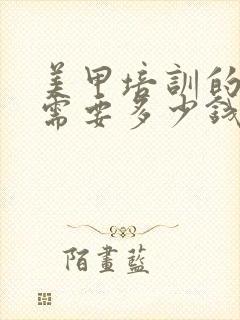 美甲培訓的
需要多少錢
陌畫藍